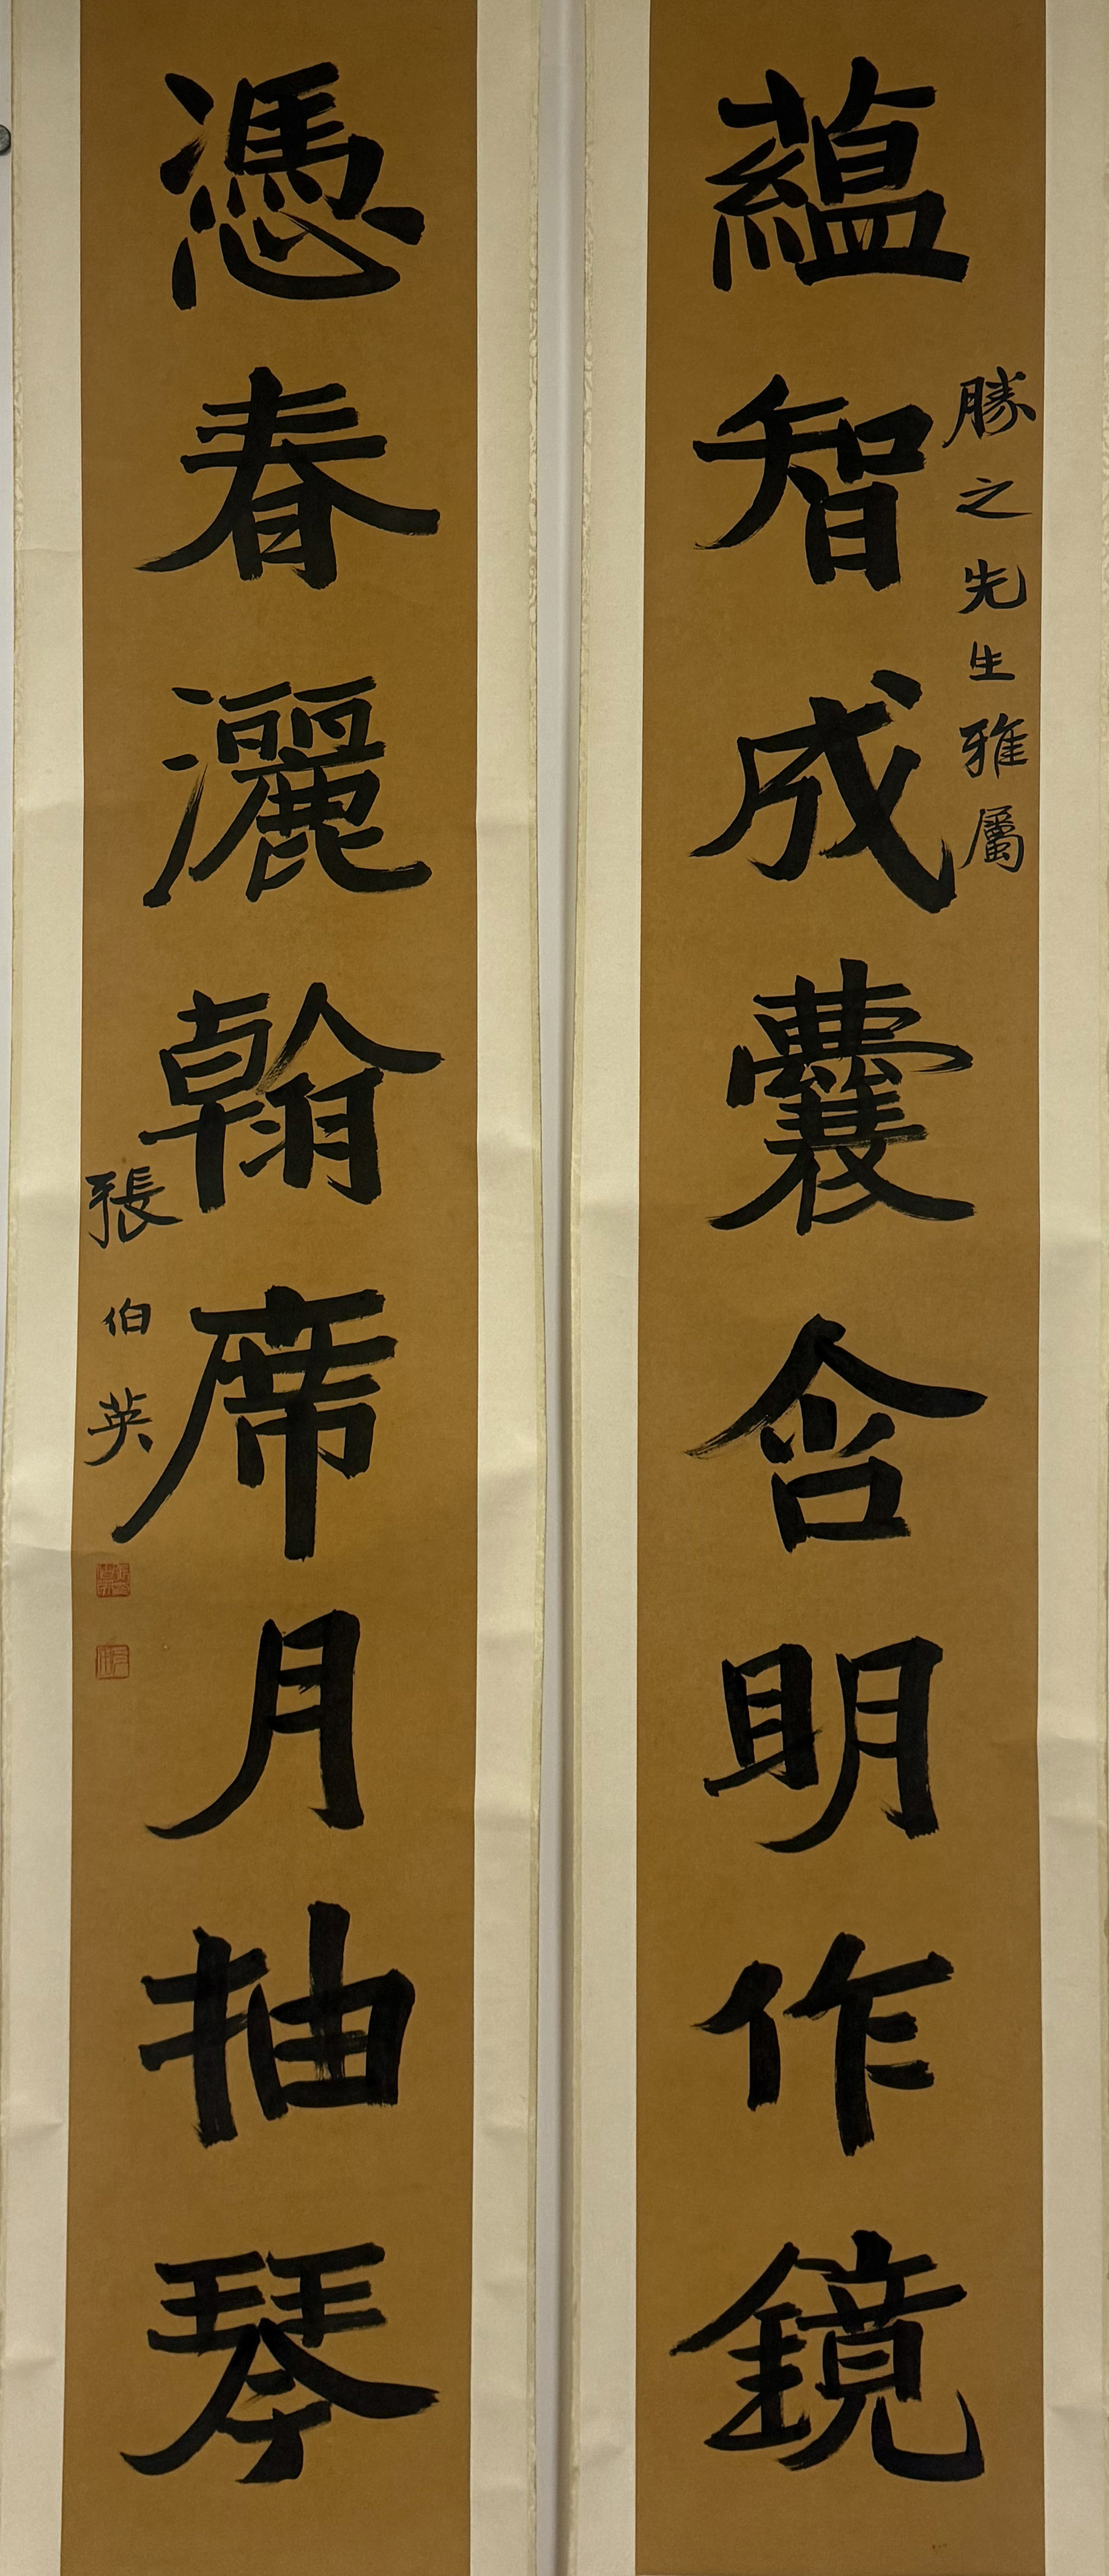 勝之先生雅屬
蘊智成囊含明作鏡
憑春灑翰席月抽琴
張伯英